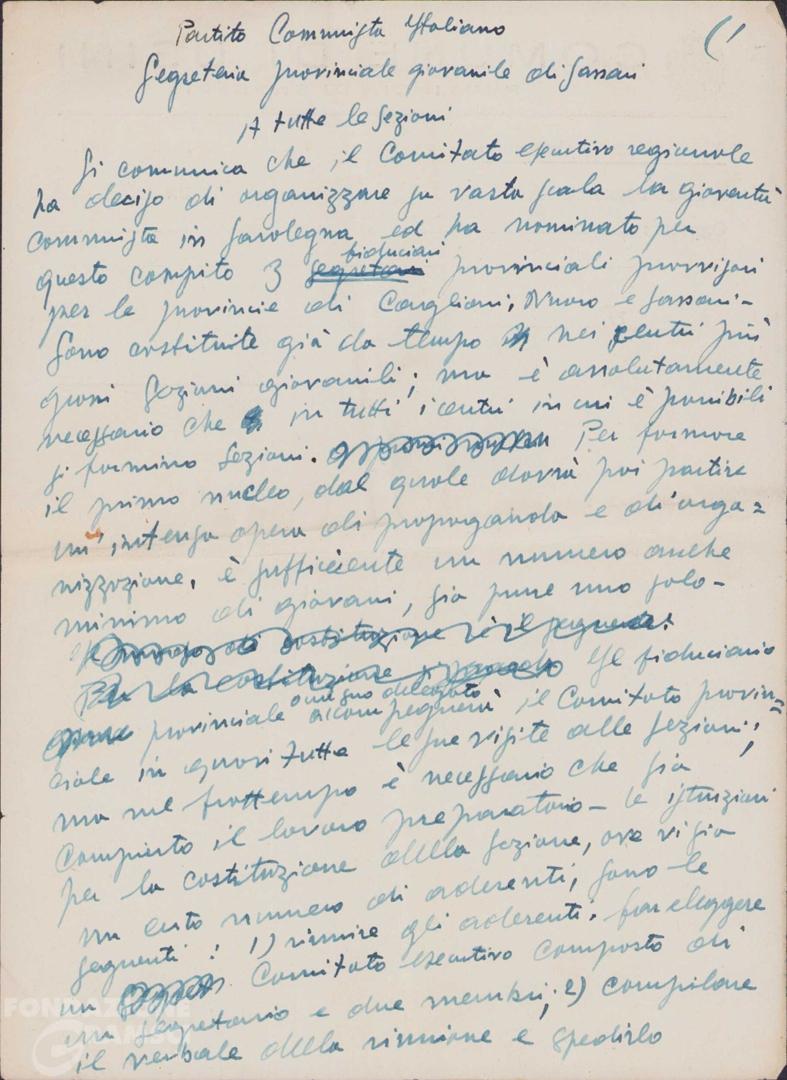 Partito Communista Italiano
Segreteria provinciale giovanile di Sassari
A tutte le sezioni
Si comunica che il Comitato esecutivo regionale
ha deciso di organizzare su vasta scala la gioventù
communista in Sardegna ed ha nominato per
fiduciari
questo compito 3 segretari provinciali provvisori
per le provincie di Cagliari, Nuoro e Sassari -
Sono costituite già da tempo nei centri più
grossi sezioni giovanili; ma è assolutamente
necessario che in tutti i centri in cui è possibili
si formino sezioni. Per formare
il primo nucleo, dal quale dovrà poi partire
un'intensa opera di propaganda e d'orga=
nizzazione, è sufficiente un numero anche
minimo di giovani, sia pure uno solo -
costituzione è il seguente:
Per la costituzione Il fiduciario
o un suo delegato
provinciale accompagnerà il Comitato provin=
ciale in quasi tutte le sue visite alle sezioni;
ma nel frattempo è necessario che sia
compiuto il lavoro preparatorio - le istruzioni
per la costituzione della sezione, ove vi sia
un certo numero di aderenti, sono le
seguenti: 1) riunire gli aderenti. far eleggere
un Comitato esecutivo composto di
un segretario e due membri; 2) compilare
il verbale della riunione e spedirlo
FONDAZIONE
GRAMSCI